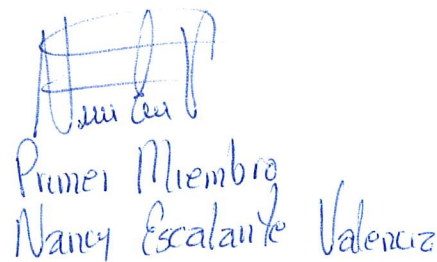 Primer Miembro
Nancy Escalante Valencia